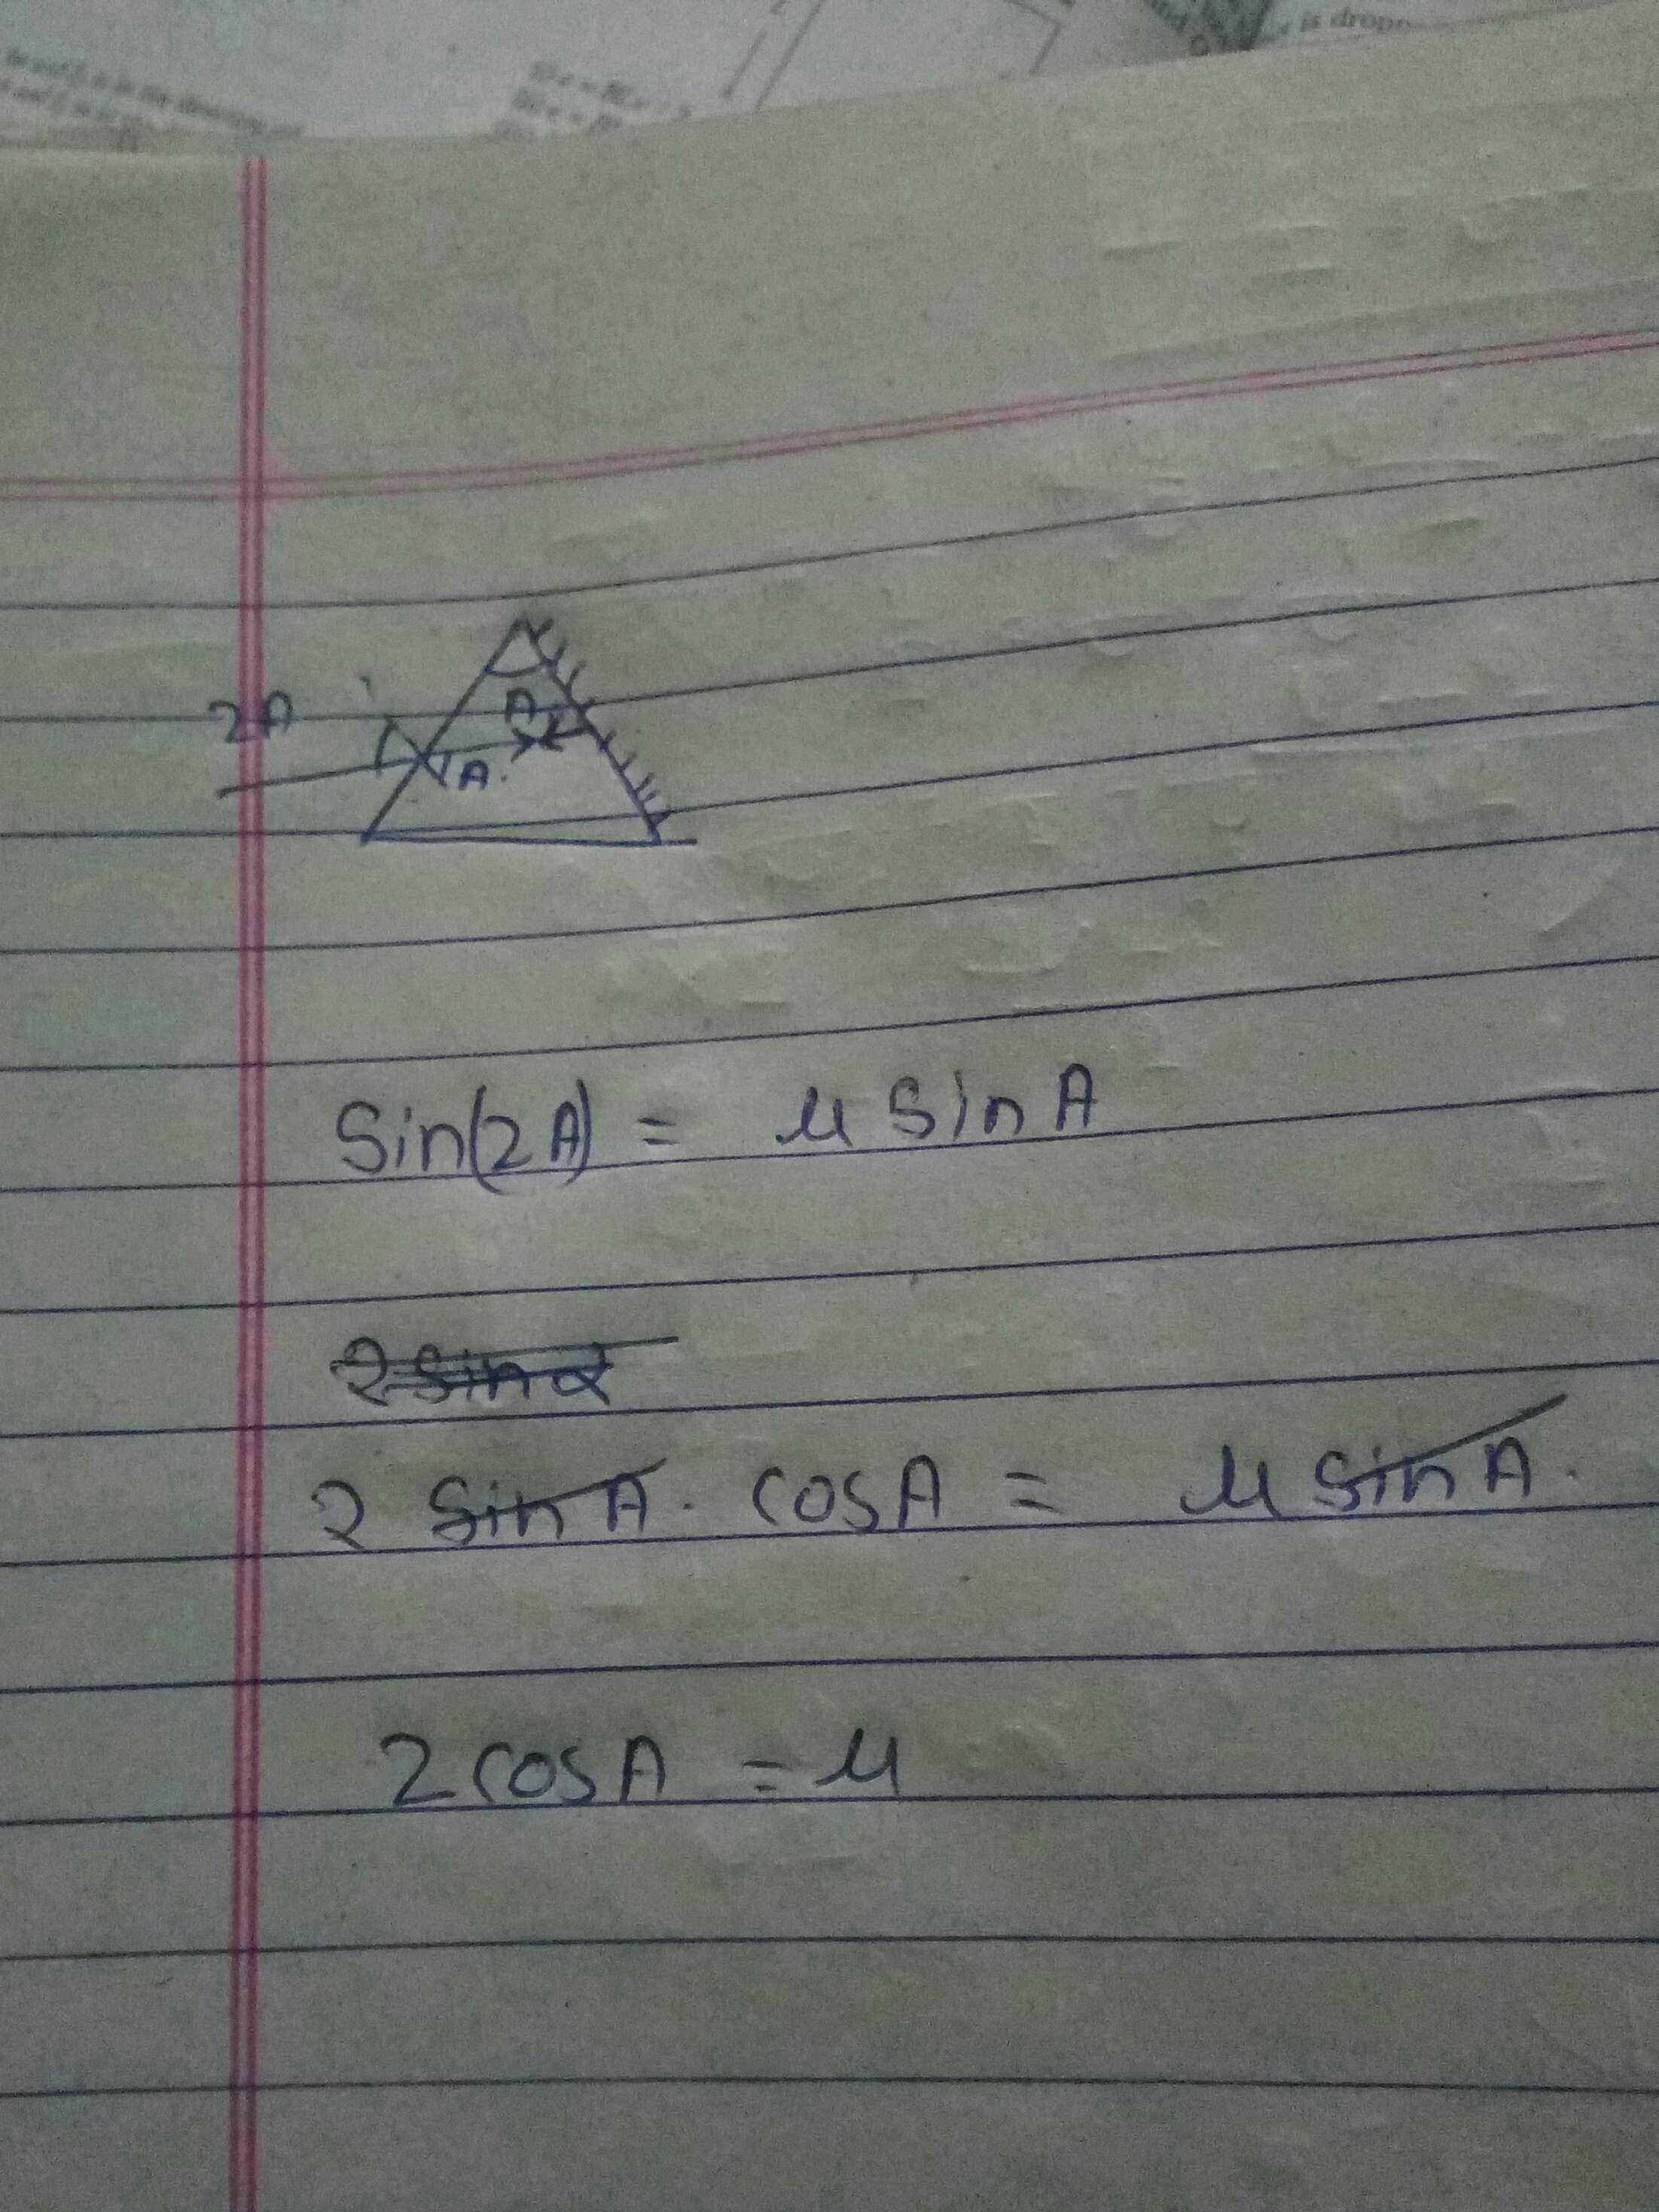 is drop
2A
A
A.
Sin(2A) = μ sin A
2 sin α
2 sin A . cos A = μ sin A.
2 cos A = μ